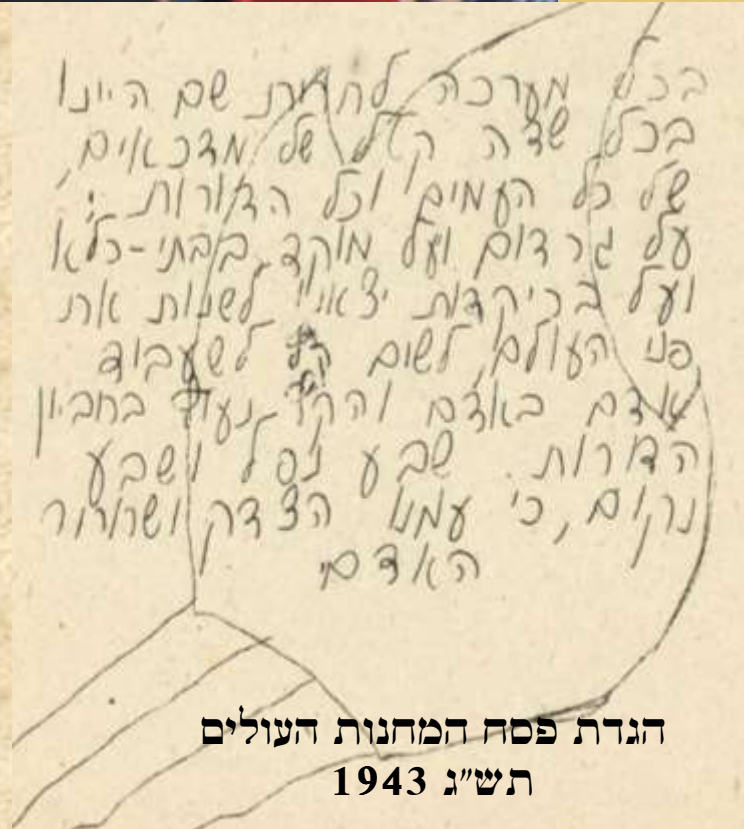 בכל מערכה לחרות שם היינו
בכל שדה קטל של מדכאים,
של כל העמים וכל הדורות.
על גרדום ועל מוקד בבתי-כלא
ועל בריקדות יצאנו לשנות את
פני העולם, לשום קץ לשעבוד
אדם באדם והקץ נעוץ בחביון
הדורות. שבע נפל ושבע
נקום, כי עמנו הצדק ושחרור
האדם
הגדת פסח המחנות העולים
תש״ג 1943